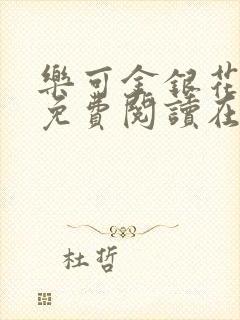 樂可金銀花
免費閱讀在
杜哲